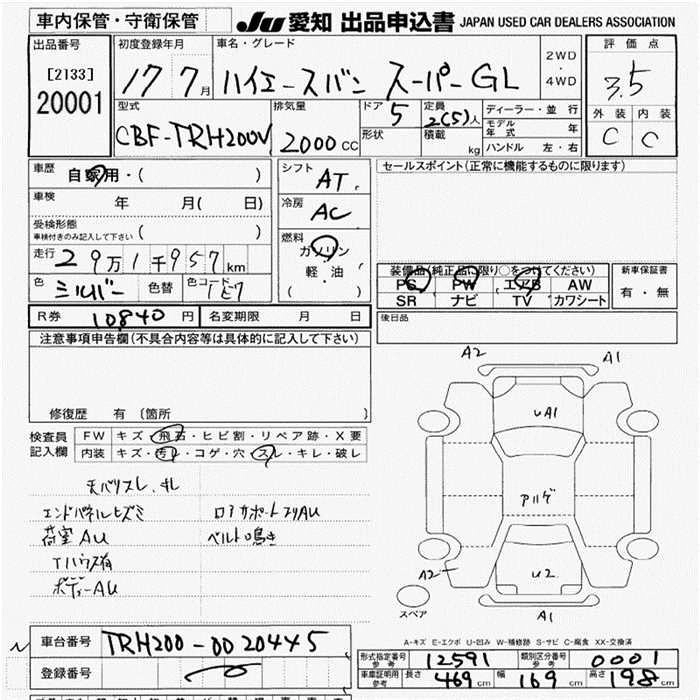 車内保管・守衛保管
JU 愛知 出品申込書 JAPAN USED CAR DEALERS ASSOCIATION
出品番号 初度登録年月 車名・グレード 2WD・4WD 評価点
[2133] 17 7月 ハイエースバン スーパーGL 3.5
20001 型式 排気量 ドア 定員 ディーラー・並行 外装 内装
CBF-TRH200V 2000CC 5 2(5)人 モデル年式 年 C C
形状 積載 kg ハンドル 左・右
車歴 自家用・( ) シフト AT セールスポイント(正常に機能するものに限ります)
車検 年 月( 日) 冷房 AC
受検形態
車検付きのみ記入して下さい ( )
燃料 ガソリン
軽・油
( )
走行 29万1千957km
色 シルバー 色替 色コード 1E7
装備品(純正品に限り○をつけてください) 新車保証書
PS PW エアB AW 有・無
SR ナビ TV カワシート
R券 10840円 名変期限 月 日 後日品
注意事項申告欄(不具合内容等は具体的に記入して下さい)
修復歴 有 (箇所 )
検査員記入欄
FW キズ・飛石・ヒビ割・リペア跡・X要
内装 キズ・汚レ・コゲ・穴・スレ・キレ・破レ
天バリスレ、キレ
エンドパネルヒズミ ロアサポートスリAU
荷室AU ベルト鳴き
Tハウス有
ボディーAU
A2 A1
UA1
アルゲ
A2 U2
スペア A1
A-キズ E-エクボ U-凹み W-補修跡 S-サビ C-腐食 XX-交換済
車台番号 TRH200-0020445
登録番号
形式指定番号 参考 12591 類別区分番号 参考 0001
車庫証明用 参考 長さ 469cm 幅 169cm 高さ 198cm